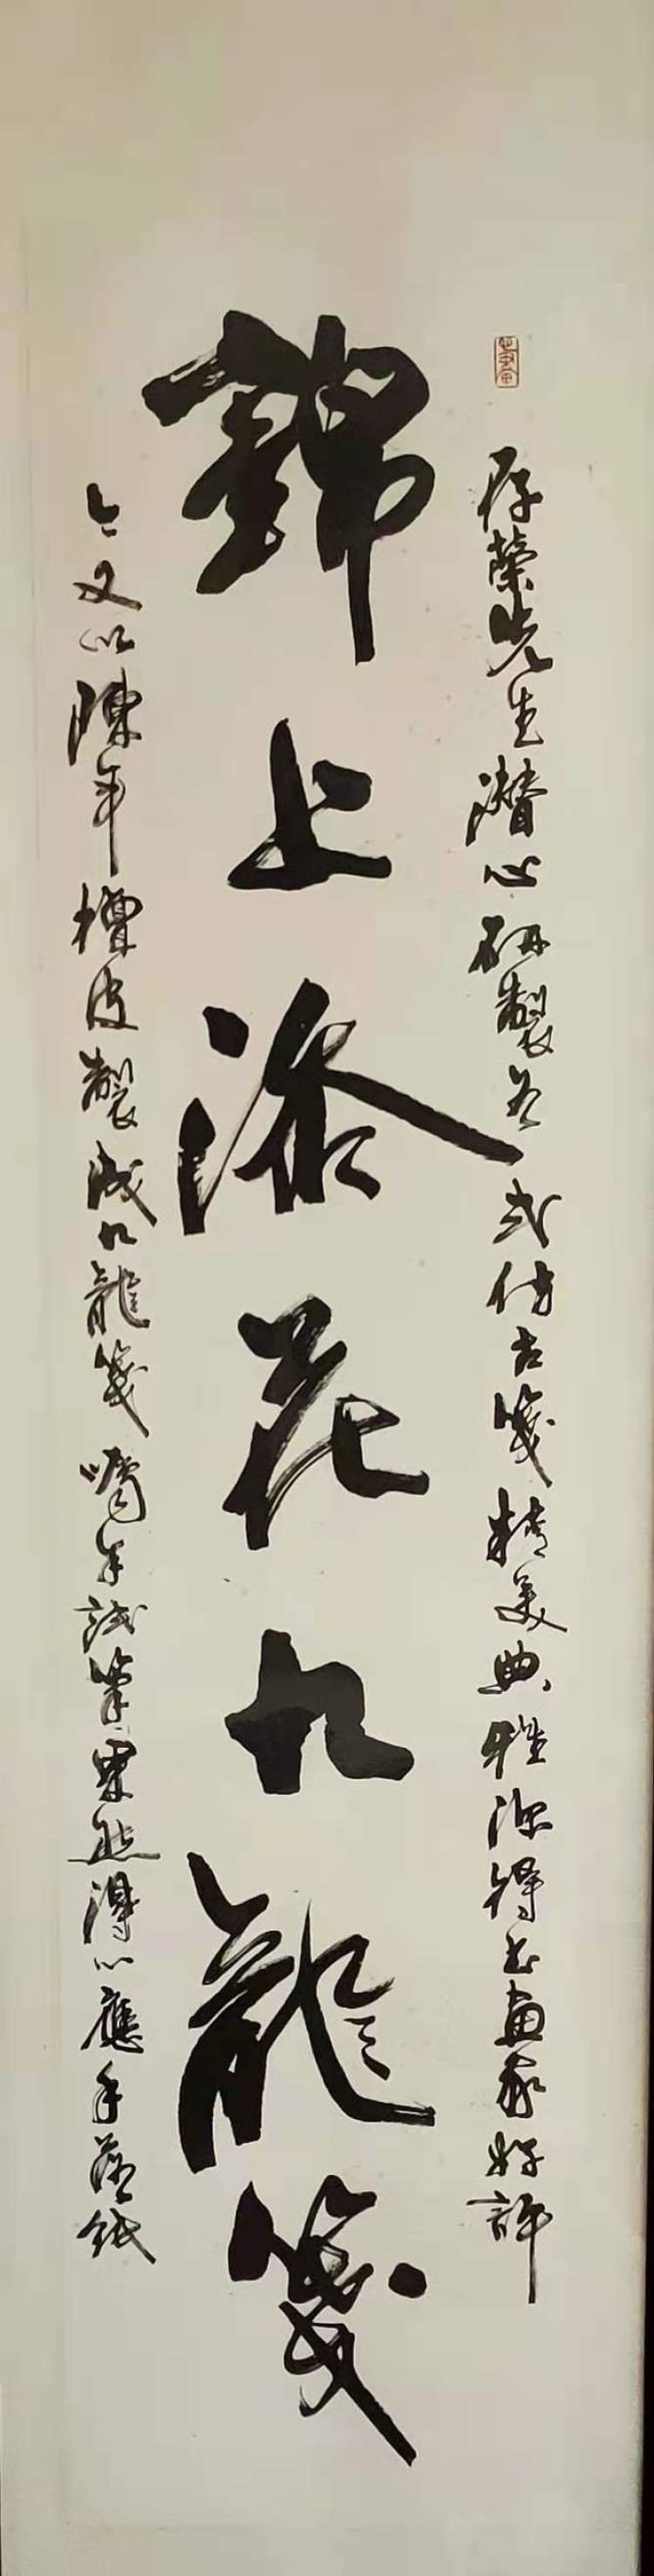 存榮先生潛心研製各式仿古箋精美典雅深得書畫家好評
錦上添花九龍箋
今又以陳年檀皮製成九龍箋囑余試筆果然得心應手落紙